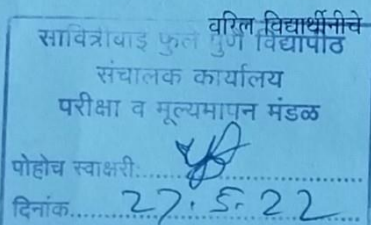 वरिल विद्यार्थीनीचे
सावित्रीबाई फुले पुणे विद्यापीठ
संचालक कार्यालय
परीक्षा व मूल्यमापन मंडळ
पोहोच स्वाक्षरी:
दिनांक 27.5.22